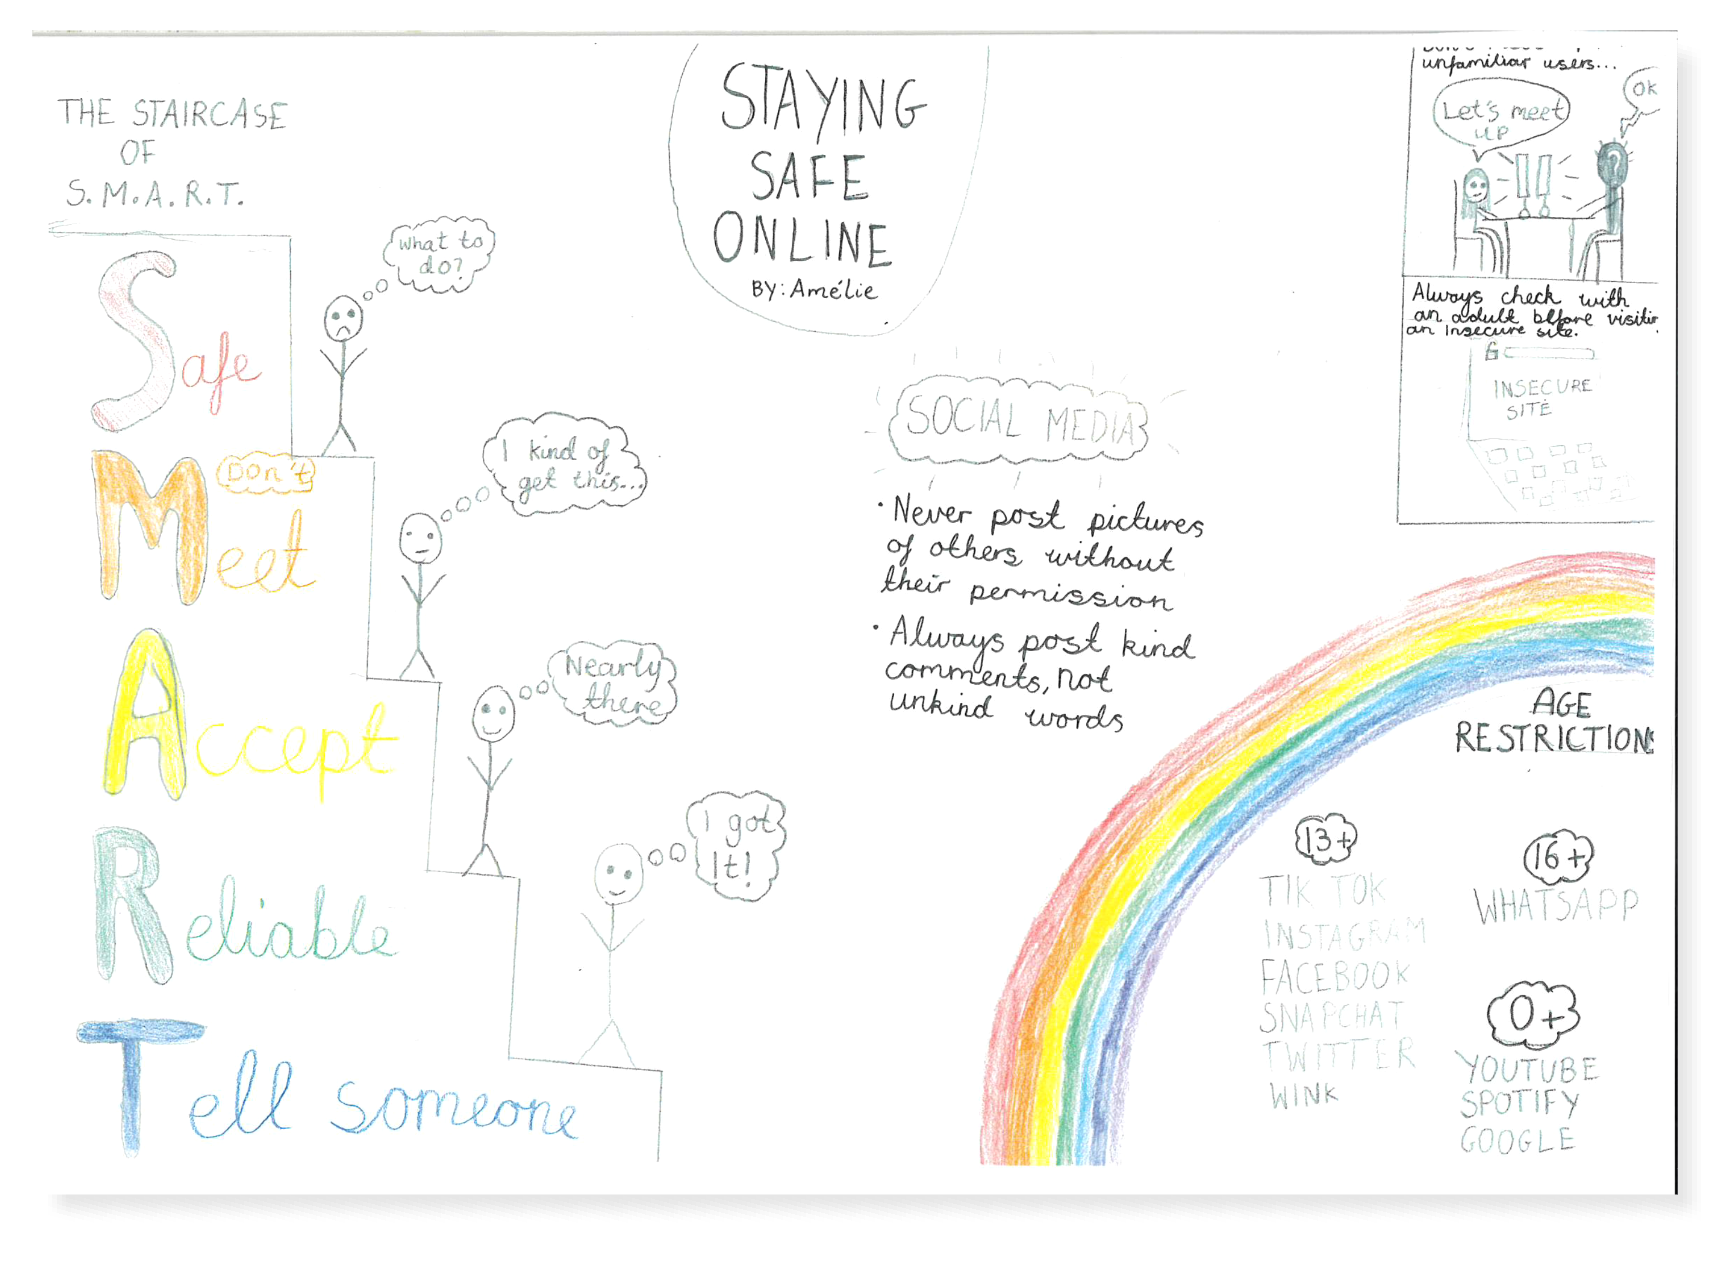 THE STAIRCASE
OF
S.M.A.R.T.
Safe
Don't
Meet
Accept
Reliable
Tell someone
What to
do?
I kind of
get this...
Nearly
there
I got
It!
STAYING
SAFE
ONLINE
BY: Amélie
SOCIAL MEDIA
• Never post pictures
of others without
their permission
• Always post kind
comments, not
unkind words
unfamiliar users...
Let's meet
up
OK
?
Always check with
an adult before visitin
an insecure site.
INSECURE
SITE
AGE
RESTRICTIONS
13+
TIK TOK
INSTAGRAM
FACEBOOK
SNAPCHAT
TWITTER
WINK
16+
WHATSAPP
0+
YOUTUBE
SPOTIFY
GOOGLE